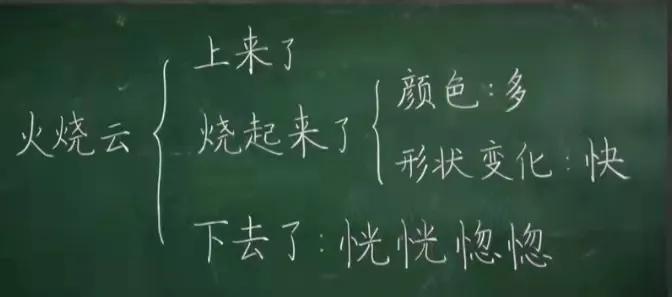 上来了
颜色:多
火烧云
烧起来了
形状变化:快
下去了:恍恍惚惚